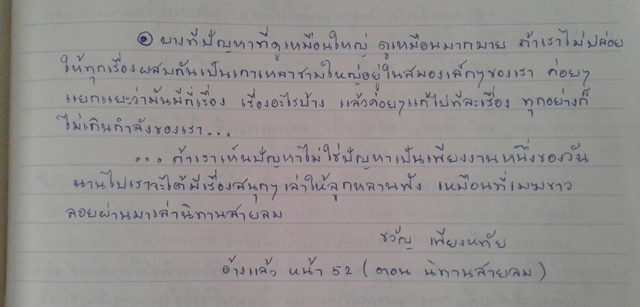 ๏ บางทีปัญหาที่ดูเหมือนใหญ่ ดูเหมือนมากมาย ถ้าเราไม่ปล่อย
ให้ทุกเรื่องผสมกันเป็นเกาเหลาชามใหญ่อยู่ในสมองเล็กๆของเรา ค่อยๆ
แยกแยะว่ามันมีกี่เรื่อง เรื่องอะไรบ้าง แล้วค่อยๆแก้ไปทีละเรื่อง ทุกอย่างก็
ไม่เกินกำลังของเรา...
... ถ้าเราเห็นปัญหาไม่ใช่ปัญหาเป็นเพียงงานหนึ่งของวัน
นานไปเราจะได้มีเรื่องสนุกๆเล่าให้ลูกหลานฟัง เหมือนที่เมฆขาว
ลอยผ่านมาเล่านิทานสายลม
ขวัญ เพียงหทัย
อ้างแล้ว หน้า 52 (ตอน นิทานสายลม)